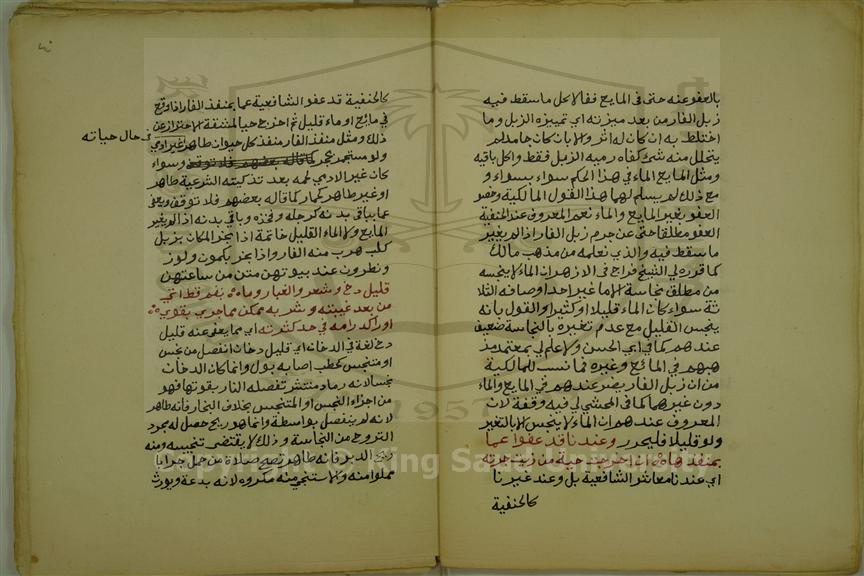 بالعفو عنه حتى في المايع فقالا كل ما سقط فيه
زبل الفار من بعد ميزته اي تمييزه الزبل وما
اختلط به ان كان له اثر والا بان كان جامد لم
يتحلل منه شئ كفاه رميه الزبل فقط واكل باقيه
ومثل المايع الماء في هذا الحكم سواء بسواء و
مع ذلك لم يسلم لهما هذا القول المالكية وخصو
العفو بغير المايع والماء نعم المعروف عند الحنفية
العفو مطلقا حتى عن جرم زبل الفار اذا لم يغير
ما سقط فيه والذي نعلمه من مذهب مالك
كما قرره لي الشيخ فراج في الازهر ان الماء لا ينجسه
من مطلق نجاسة الا ما غير احد اوصافه الثلا
ثة سواء كان الماء قليلا او كثيرا والقول بانه
ينجس القليل مع عدم تغيره بالنجاسة ضعيف
عندهم كما في ابي الحسن ولا علم لي بمعتمد مذ
هبهم في المائع وغيره فما نسب للمالكية
من ان زبل الفار يضر عندهم في المايع والماء
دون غيرهما كما في المحشي لي فيه وقفة لان
المعروف عندهم ان الماء لا ينجس الا بالتغير
ولو قليلا فليحرر وعندنا قد عفوا عما
بمنفذ هاه ان اخرجت حية من زيت جرته
اي عندنا معاشر الشافعية بل وعند غيرنا
كالحنفية
كالحنفية قد عفو الشافعية عما بمنفذ الفار اذا وقع
في مائع او ماء قليل ثم اخرج حيا لمشقة الاحتراز عن
ذلك ومثل منفذ الفار منفذ كل حيوان طاهر غير ادمي
في حال حياته
ولو مستجمر بحجر كما قاله بعضهم فلا توقف وسواء
كان غير الادمي لحمه بعد تذكيته الشرعية طاهر
او غير طاهر كحمار كما قاله بعضهم فلا توقف ويعفى
عما بباقي بدنه كرجله وفخذه وباقي بدنه اذا لم يغير
المايع ولا الماء القليل خاتمة اذا بخر المكان بزبل
كلب هرب منه الفار واذا بخر بكمون ولوز
ونطرون عند بيوتهن متن من ساعتهن
قليل دخ وشعر والغبار وماء بفم قط اتي
من بعد غيبته وشربه ممكن مما جري بقوي
او راكد رامه في حد كثرته اي مما يعفو عنه قليل
دخ لغة في الدخان اي قليل دخان انفصل من نجس
او متنجس كحطب اصابه بول وانما كان الدخان
نجسا لانه رماد منتشر تفصله النار بقوتها فهو
من اجزاء النجس او المتنجس بخلاف البخار فانه طاهر
لانه لم ينفصل بواسطة وانما هو ريح حصل له بمجرد
التروح من النجاسة وذلك لا يقتضي تنجيسه ومنه
ريح الدبر فانه طاهر تصح صلاة من حمل جرابا
مملوا منه ولا استنجي منه مكروه لانه بدعة ويورث
Copyright © King Saud University
1957